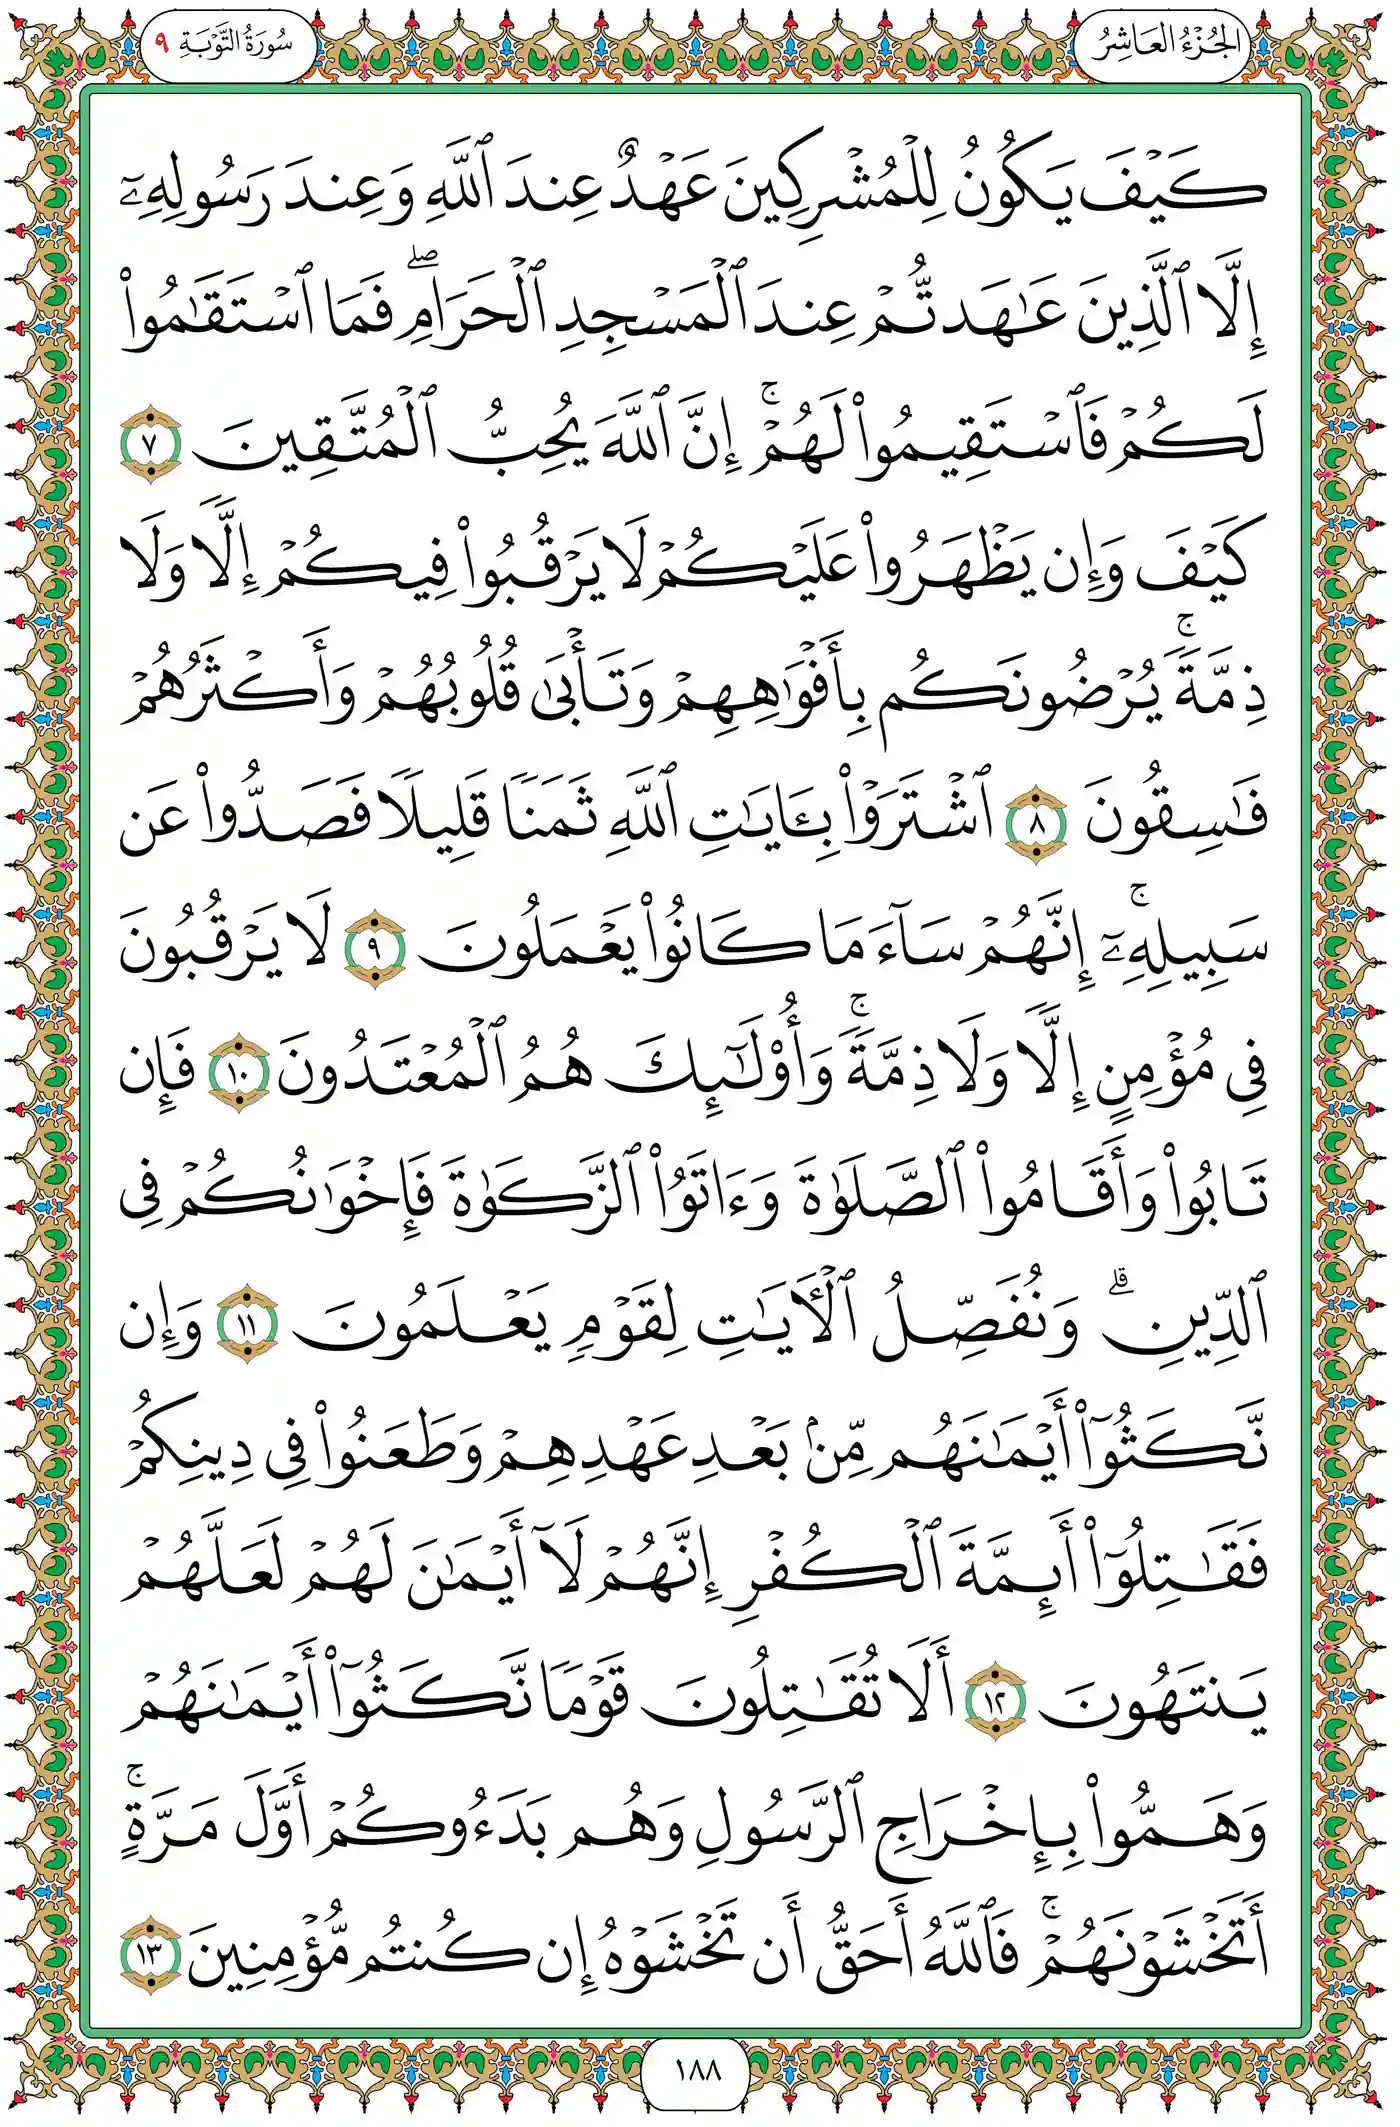 الجُزْءُ العَاشِرُ
سُورَةُ التَّوْبَةِ ٩
كَيۡفَ يَكُونُ لِلۡمُشۡرِكِينَ عَهۡدٌ عِندَ ٱللَّهِ وَعِندَ رَسُولِهِۦٓ
إِلَّا ٱلَّذِينَ عَٰهَدتُّمۡ عِندَ ٱلۡمَسۡجِدِ ٱلۡحَرَامِۖ فَمَا ٱسۡتَقَٰمُواْ
لَكُمۡ فَٱسۡتَقِيمُواْ لَهُمۡۚ إِنَّ ٱللَّهَ يُحِبُّ ٱلۡمُتَّقِينَ ٧
كَيۡفَ وَإِن يَظۡهَرُواْ عَلَيۡكُمۡ لَا يَرۡقُبُواْ فِيكُمۡ إِلّٗا وَلَا
ذِمَّةٗۚ يُرۡضُونَكُم بِأَفۡوَٰهِهِمۡ وَتَأۡبَىٰ قُلُوبُهُمۡ وَأَكۡثَرُهُمۡ
فَٰسِقُونَ ٨ ٱشۡتَرَوۡاْ بِـَٔايَٰتِ ٱللَّهِ ثَمَنٗا قَلِيلٗا فَصَدُّواْ عَن
سَبِيلِهِۦٓۚ إِنَّهُمۡ سَآءَ مَا كَانُواْ يَعۡمَلُونَ ٩ لَا يَرۡقُبُونَ
فِي مُؤۡمِنٍ إِلّٗا وَلَا ذِمَّةٗۚ وَأُوْلَٰٓئِكَ هُمُ ٱلۡمُعۡتَدُونَ ١٠ فَإِن
تَابُواْ وَأَقَامُواْ ٱلصَّلَوٰةَ وَءَاتَوُاْ ٱلزَّكَوٰةَ فَإِخۡوَٰنُكُمۡ فِي
ٱلدِّينِۗ وَنُفَصِّلُ ٱلۡأٓيَٰتِ لِقَوۡمٖ يَعۡلَمُونَ ١١ وَإِن
نَّكَثُوٓاْ أَيۡمَٰنَهُم مِّنۢ بَعۡدِ عَهۡدِهِمۡ وَطَعَنُواْ فِي دِينِكُمۡ
فَقَٰتِلُوٓاْ أَئِمَّةَ ٱلۡكُفۡرِ إِنَّهُمۡ لَآ أَيۡمَٰنَ لَهُمۡ لَعَلَّهُمۡ
يَنتَهُونَ ١٢ أَلَا تُقَٰتِلُونَ قَوۡمٗا نَّكَثُوٓاْ أَيۡمَٰنَهُمۡ
وَهَمُّواْ بِإِخۡرَاجِ ٱلرَّسُولِ وَهُم بَدَءُوكُمۡ أَوَّلَ مَرَّةٍۚ
أَتَخۡشَوۡنَهُمۡۚ فَٱللَّهُ أَحَقُّ أَن تَخۡشَوۡهُ إِن كُنتُم مُّؤۡمِنِينَ ١٣
١٨٨